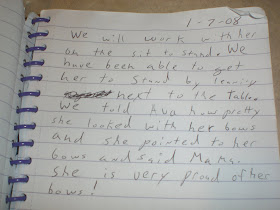 1-7-08
We will work with her
on the sit to stand. We
have been able to get
her to stand by leaning
next to the table.
We told Ava how pretty
she looked with her bows
and she pointed to her
bows and said Mama.
She is very proud of her
bows!